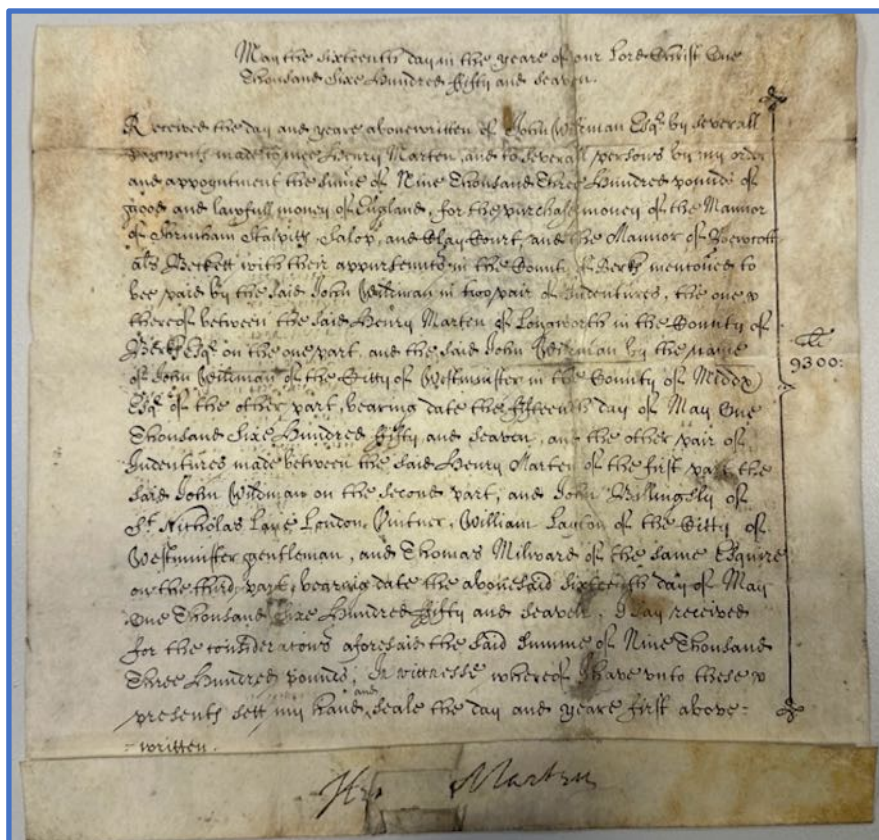 May the sixteenth day in the yeare of our Lord Christ One
Thousand sixe Hundred fifty and seaven.
Received the day and yeare abovewritten of John Wildman Esqr. by severall
payments made to mee Henry Marten, and to severall persons by my order
and appoyntment the sume of Nine Thousand Three Hundred pounds of
good and lawfull money of England, for the purchase money of the Mannor
of Shrinham Stalpitts Salop, and Clay Court, and the Mannor of
als Beckett with their appurtennts in the County of Berks mentoned to
bee paid by the said John Wildman in two pair of Indentures, the one
thereof between the said Henry Marten of Longworth in the County of
Berks Esqr. on the one part, and the said John Wildman by the name
of John Wildman of the Citty of Westminster in the County of Middx
Esqr. of the other part, bearing date the fifteenth day of May One
Thousand sixe Hundred fifty and seaven, and the other pair of
Indentures made between the said Henry Marten of the first part, the
said John Wildman on the second part, and John Billingsly of
St. Nicholas Lane London Vintner, William of the Citty of
Westminster gentleman, and Thomas Milward of the same Esquire
on the third part, bearing date the abovesaid sixteenth day of May
One Thousand sixe Hundred fifty and seaven. I say received
for the consideratons aforesaid the said summe of Nine Thousand
Three Hundred pounds, In witnesse whereof I have vnto these
presents sett my hand and seale the day and yeare first above-
-written.
9300:
Hen Marten